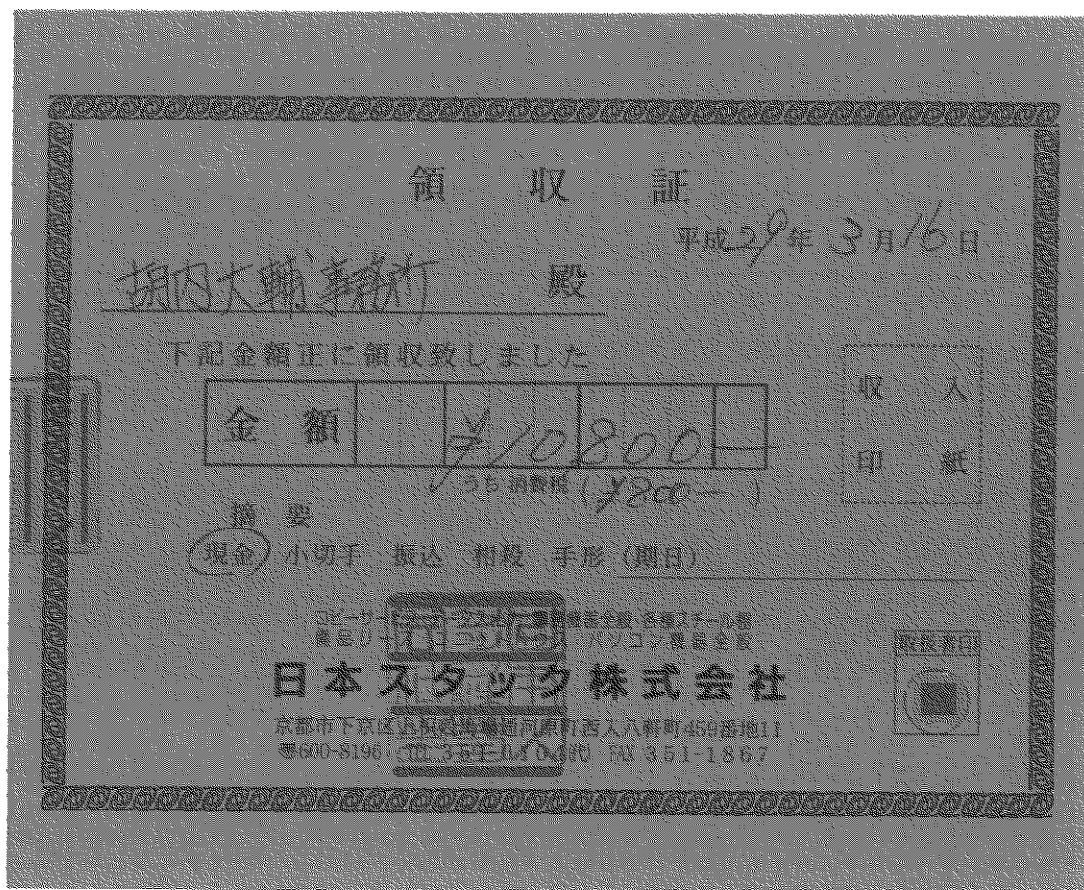 領 収 証
平成29年 3月16日
内大輔事務所 殿
下記金額正に領収致しました
収 入
印 紙
金 額 ¥10,800 —
うち 消費税 (¥800-)
摘 要
現金 小切手 振込 相殺 手形 (期日)
取扱者印
日本スタック株式会社
京都市下京区 河原町西入八軒町459番地11
〒600-8196 TEL 351- FAX 351-1867